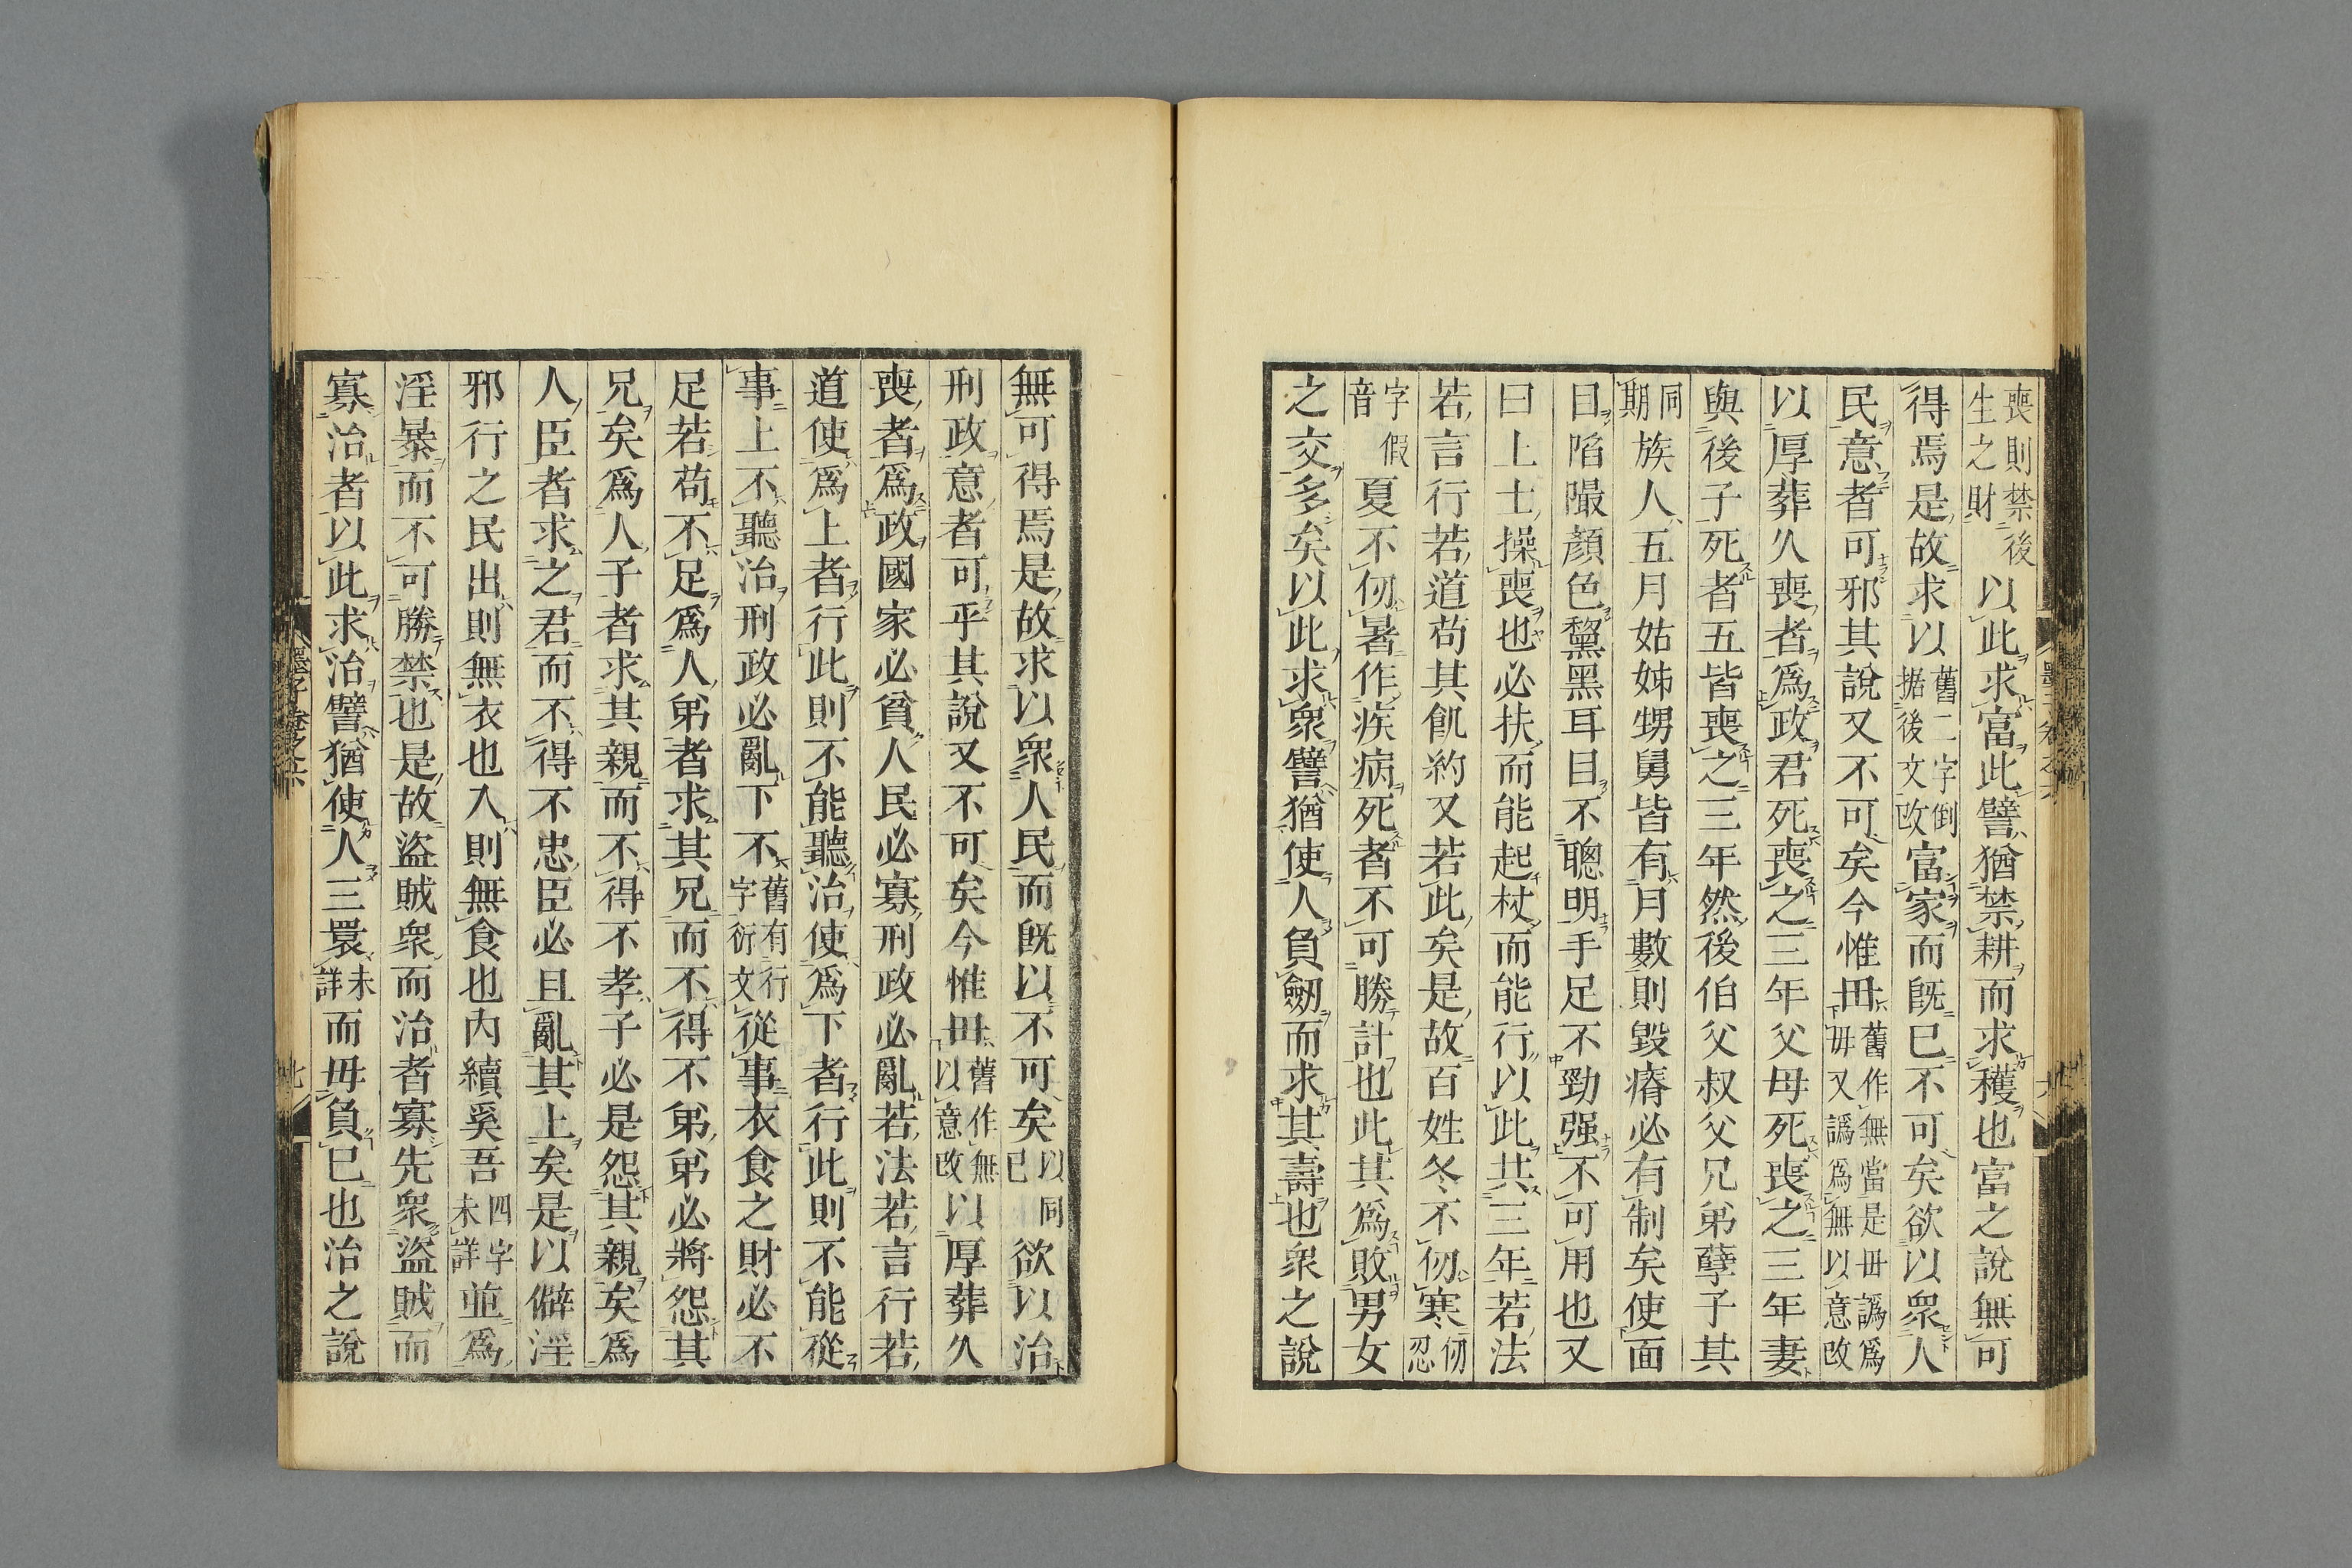 喪則禁後生之財以此求富此譬猶禁耕而求穫也富之說無可
得焉是故求以舊二字倒据後文改富家而既已不可矣欲以衆人
民意者可邪其說又不可矣今惟毋舊作無當是毋譌爲毋又譌爲無以意改
以厚葬久喪者爲政君死喪之三年父母死喪之三年妻
與後子死者五皆喪之三年然後伯父叔父兄弟孽子其
同期族人五月姑姊甥舅皆有月數則毀瘠必有制矣使面
目陷𨻵顏色黧黑耳目不聰明手足不勁强不可用也又
曰上士操喪也必扶而能起杖而能行以此共三年若法
若言行若道苟其飢約又若此矣是故百姓冬不仞寒仞忍
字假音夏不仞暑作疾病死者不可勝計也此其爲敗男女
之交多矣以此求衆譬猶使人負劒而求其壽也衆之說
無可得焉是故求以衆人民而既以不可矣以同已欲以治
刑政意者可乎其說又不可矣今惟毋舊作無以意改以厚葬久
喪者爲政國家必貧人民必寡刑政必亂若法若言行若
道使爲上者行此則不能聽治使爲下者行此則不能從
事上不聽治刑政必亂下不舊有行字衍文從事衣食之財必不
足若苟不足爲人弟者求其兄而不得不弟弟必將怨其
兄矣爲人子者求其親而不得不孝子必是怨其親矣爲
人臣者求之君而不得不忠臣必且亂其上矣是以僻淫
邪行之民出則無衣也入則無食也內續奚吾四字未詳並爲
淫暴而不可勝禁也是故盜賊衆而治者寡先衆盜賊而
寡治者以此求治譬猶使人三睘未詳而毋負已也治之說
墨子卷之六